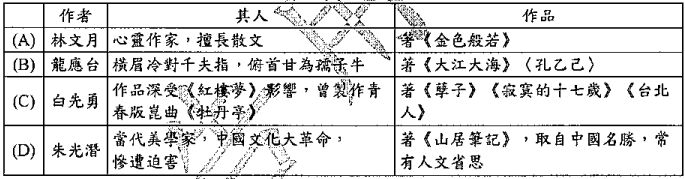 作者 其人 作品
(A) 林文月 心靈作家，擅長散文 著《金色般若》
(B) 龍應台 橫眉冷對千夫指，俯首甘為孺子牛 著《大江大海》〈孔乙己〉
(C) 白先勇 作品深受《紅樓夢》影響，曾製作青春版崑曲《牡丹亭》 著《孽子》《寂寞的十七歲》《台北人》
(D) 朱光潛 當代美學家，中國文化大革命，慘遭迫害 著《山居筆記》，取自中國名勝，常有人文省思